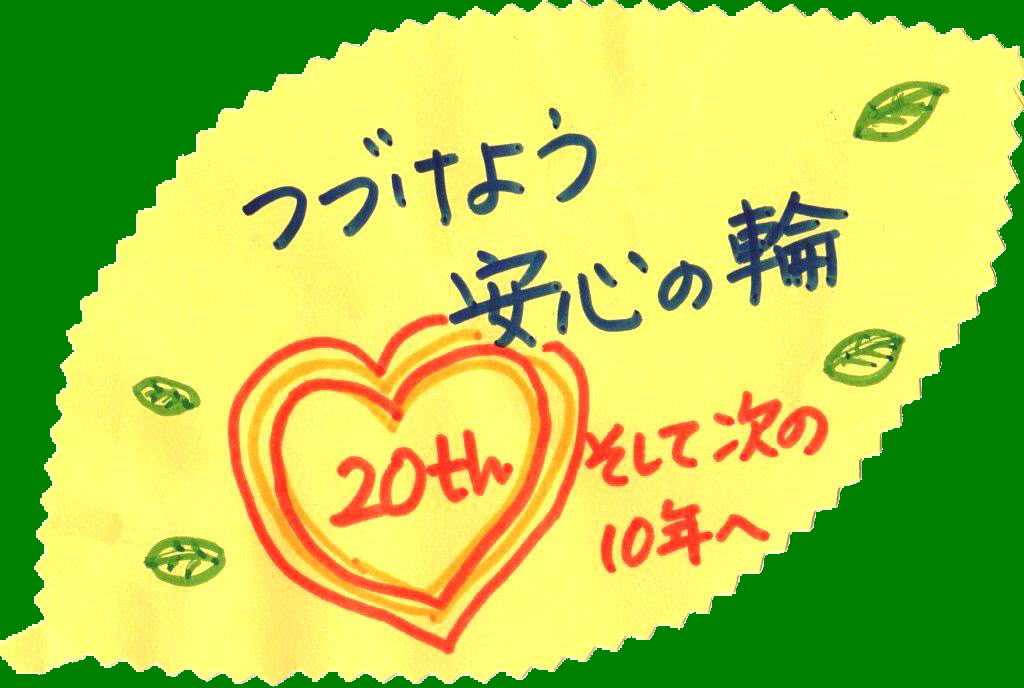 つづけよう
安心の輪
20th
そして次の
10年へ